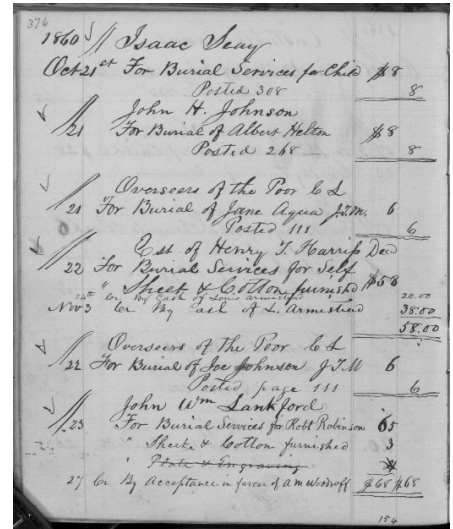 376
1860 // Isaac Seay
Oct 21st For Burial Services for Child $8
Posted 308 8
John H. Johnson
21 For Burial of Albert Helton $8
Posted 268 8
Overseers of the Poor C L
21 For Burial of Jane Aqua J.T.M. 6
Posted 111 6
Est of Henry T. Harriss Decd
22 For Burial Services for Self
" Sheet & Cotton furnishd $58
24th Cr By Cash of Louis Armistead 20.00
Nov 3 Cr By Cash of L. Armistead 38.00
58.00
Overseers of the Poor C L
22 For Burial of Joe Johnson J.T.M 6
Posted page 111 6
John Wm Lankford
23 For Burial Services for Robt Robinson 65
" Sheet & Cotton furnished 3
" Plate & Engraving
27 Cr By Acceptance in favour of A M $68 $68
154